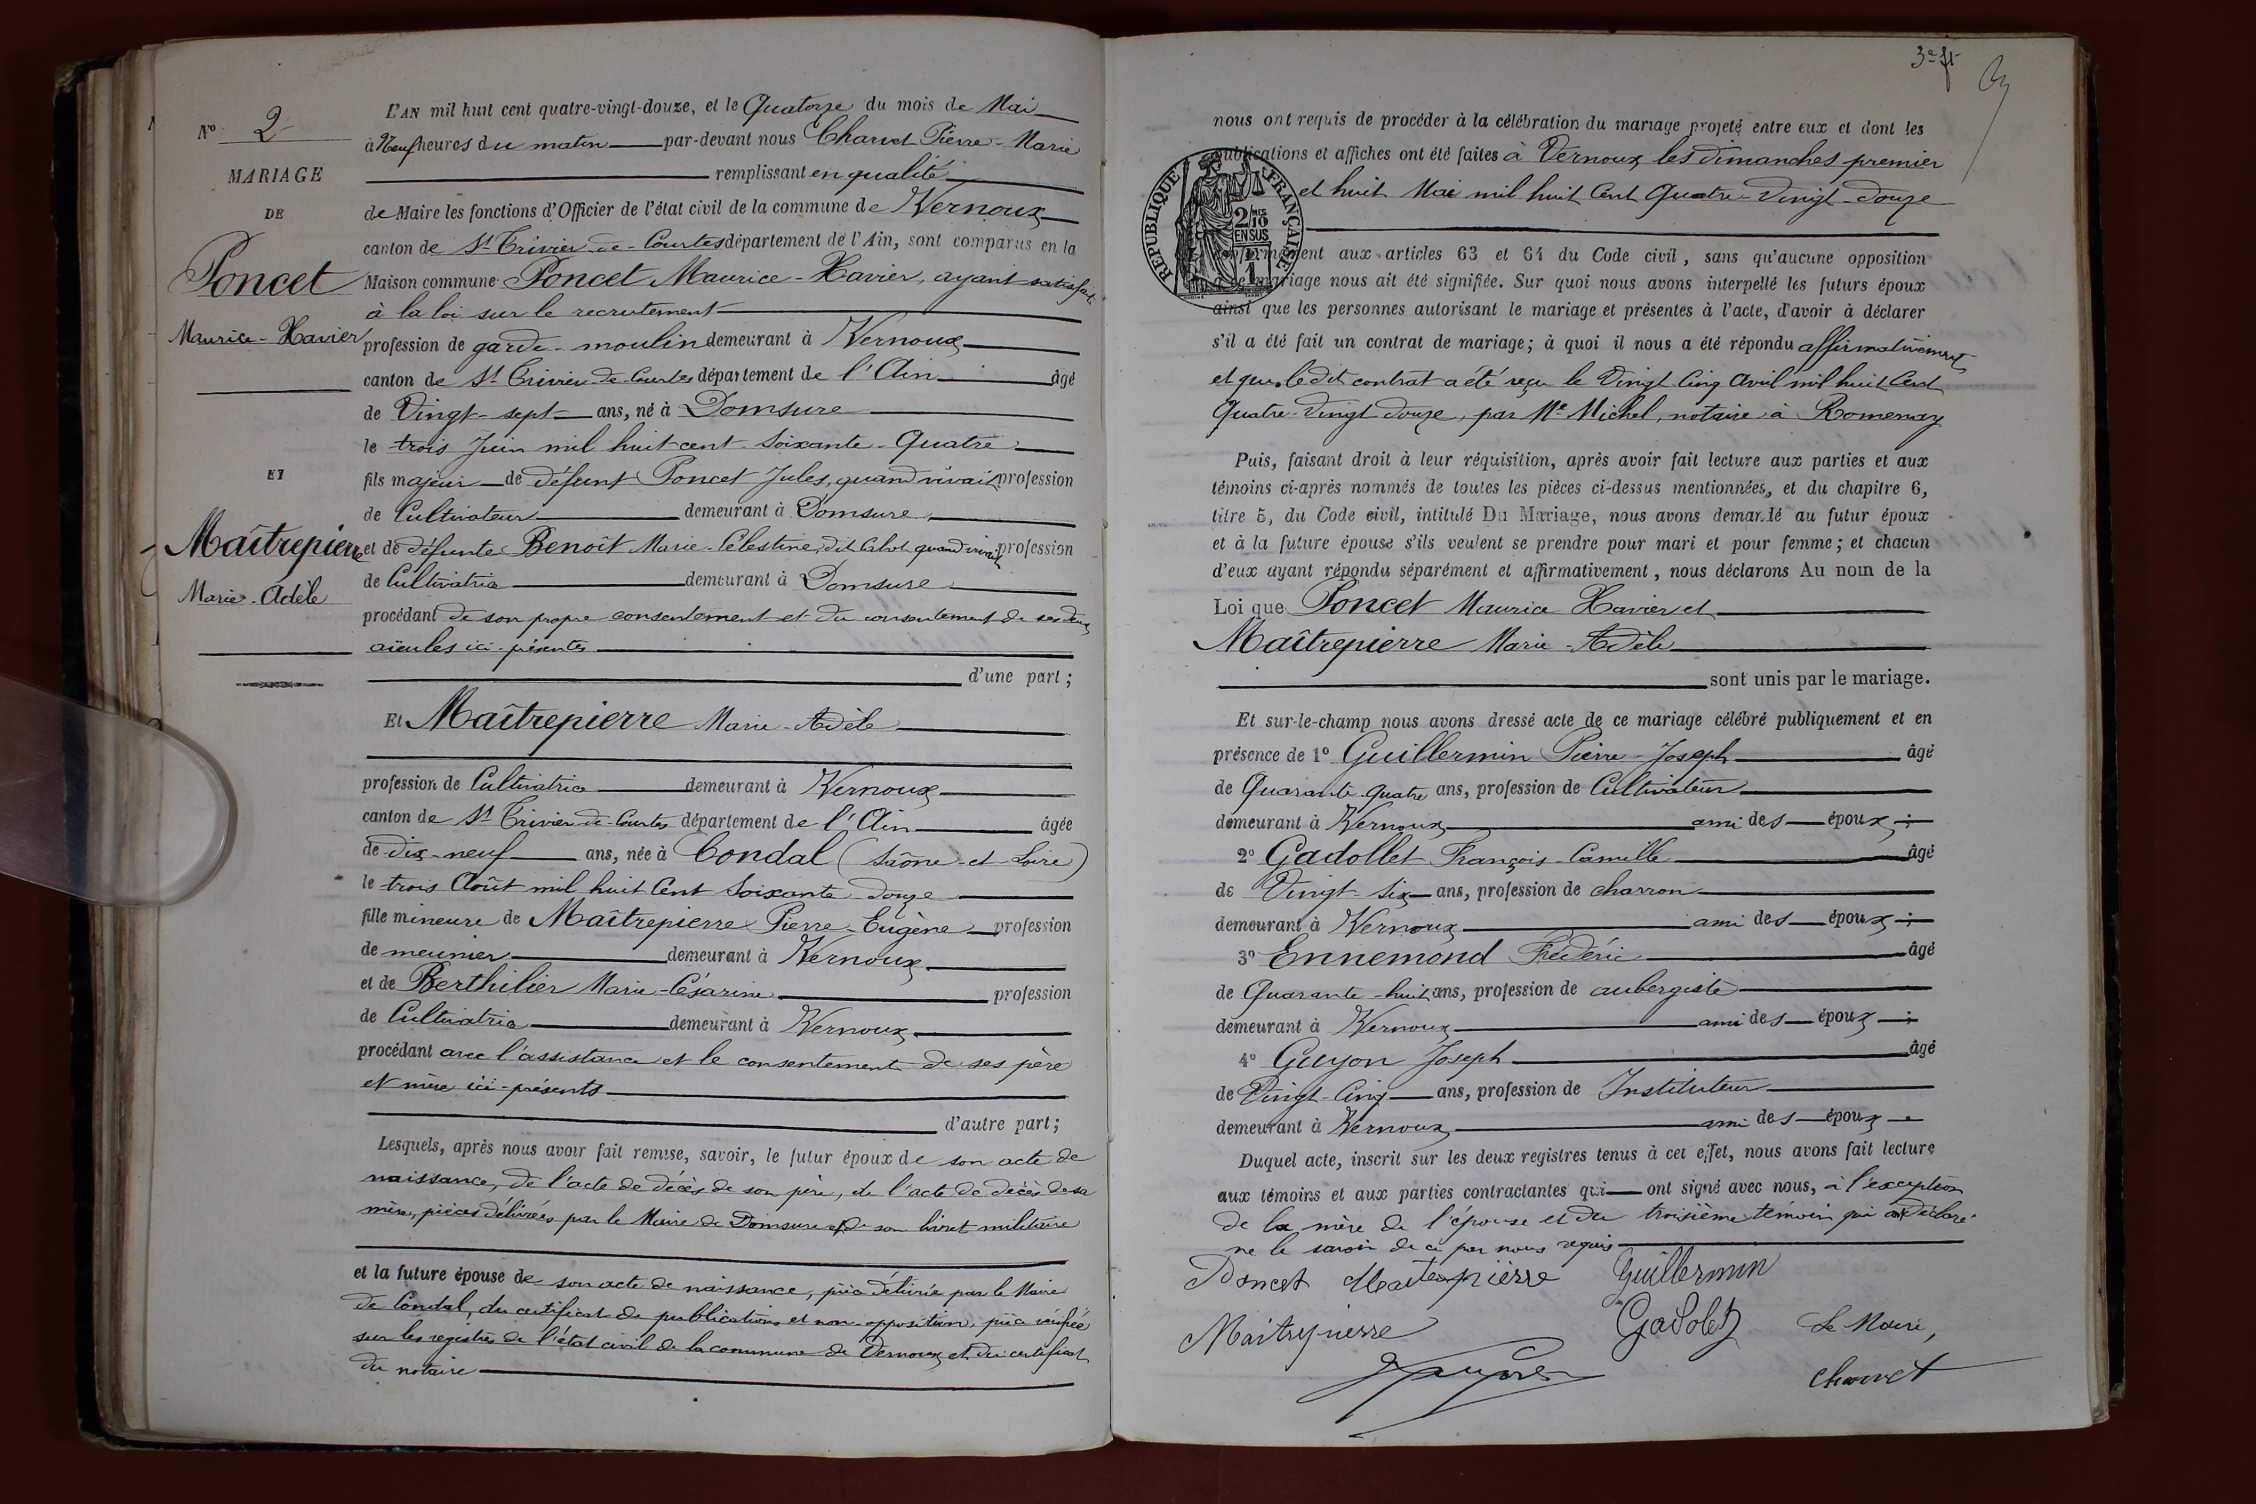 N° 2
MARIAGE
DE
Poncet
Maurice-Xavier
ET
Maîtrepierre
Marie-Adèle
L'AN mil huit cent quatre-vingt-douze, et le Quatorze du mois de Mai
à Neuf heures du matin par-devant nous Charvet Pierre-Marie
remplissant en qualité
de Maire les fonctions d'Officier de l'état civil de la commune de Vernoux
canton de St Trivier-de-Courtes département de l'Ain, sont comparus en la
Maison commune Poncet Maurice-Xavier, ayant satisfait
à la loi sur le recrutement
profession de garde-moulin demeurant à Vernoux
canton de St Trivier-de-Courtes département de l'Ain âgé
de Vingt-sept ans, né à Domsure
le trois Juin mil huit cent soixante-Quatre
fils majeur de défunt Poncet Jules, quand vivait profession
de Cultivateur demeurant à Domsure
et de défunte Benoît Marie-Célestine, dit Cabot quand vivait profession
de Cultivatrice demeurant à Domsure
procédant de son propre consentement et du consentement de ses deux
aïeules ici-présentes
d'une part;
Et Maîtrepierre Marie-Adèle
profession de Cultivatrice demeurant à Vernoux
canton de St Trivier-de-Courtes département de l'Ain âgée
de dix-neuf ans, née à Condal (Saône-et-Loire)
le trois Août mil huit Cent Soixante-Douze
fille mineure de Maîtrepierre Pierre-Eugène profession
de meunier demeurant à Vernoux
et de Berthilier Marie-Césarine profession
de Cultivatrice demeurant à Vernoux
procédant avec l'assistance et le consentement de ses père
et mère ici-présents
d'autre part;
Lesquels, après nous avoir fait remise, savoir, le futur époux de son acte de
naissance, de l'acte de décès de son père, de l'acte de décès de sa
mère, pièces délivrées par le Maire de Domsure et de son livret militaire
et la future épouse de son acte de naissance, pièce délivrée par le Maire
de Condal, du certificat de publications et non-opposition, pièce vérifiée
sur les registres de l'état civil de la commune de Vernoux et du certificat
du notaire
nous ont requis de procéder à la célébration du mariage projeté entre eux et dont les
publications et affiches ont été faites à Vernoux, les dimanches premier
et huit Mai mil huit Cent Quatre-Vingt-Douze
RÉPUBLIQUE FRANÇAISE
2/10
EN SUS
conformément aux articles 63 et 64 du Code civil, sans qu'aucune opposition
à ce mariage nous ait été signifiée. Sur quoi nous avons interpellé les futurs époux
ainsi que les personnes autorisant le mariage et présentes à l'acte, d'avoir à déclarer
s'il a été fait un contrat de mariage; à quoi il nous a été répondu affirmativement
et que le dit contrat a été reçu le Vingt Cinq Avril mil huit Cent
Quatre-Vingt Douze, par Me Michel, notaire à Romenay
Puis, faisant droit à leur réquisition, après avoir fait lecture aux parties et aux
témoins ci-après nommés de toutes les pièces ci-dessus mentionnées, et du chapitre 6,
titre 5, du Code civil, intitulé Du Mariage, nous avons demandé au futur époux
et à la future épouse s'ils veulent se prendre pour mari et pour femme; et chacun
d'eux ayant répondu séparément et affirmativement, nous déclarons Au nom de la
Loi que Poncet Maurice Xavier et
Maîtrepierre Marie-Adèle
sont unis par le mariage.
Et sur-le-champ nous avons dressé acte de ce mariage célébré publiquement et en
présence de 1° Guillermin Pierre-Joseph âgé
de Quarante-Quatre ans, profession de Cultivateur
demeurant à Vernoux ami des époux;
2° Gadollet François-Camille âgé
de Vingt-six ans, profession de charron
demeurant à Vernoux ami des époux;
3° Ennemond Frédéric âgé
de Quarante-huit ans, profession de aubergiste
demeurant à Vernoux ami des époux;
4° Guyon Joseph âgé
de Vingt-Cinq ans, profession de Instituteur
demeurant à Vernoux ami des époux.
Duquel acte, inscrit sur les deux registres tenus à cet effet, nous avons fait lecture
aux témoins et aux parties contractantes qui ont signé avec nous, à l'exception
de la mère de l'épouse et du troisième témoin qui ont déclaré
ne le savoir de ce par nous requis
Poncet Maitrepierre Guillermin
Maitrepierre Gadolet Le Maire,
Charvet